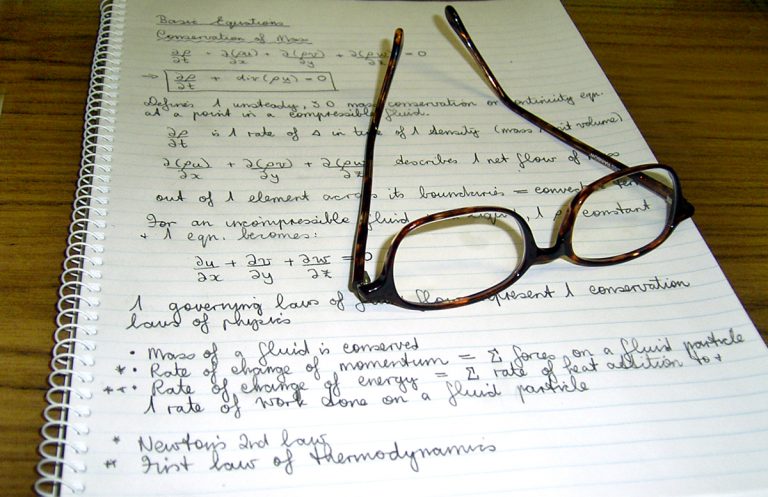 Basic Equations
Conservation of Mass
∂ρ/∂t + ∂(ρu)/∂x + ∂(ρv)/∂y + ∂(ρw)/∂z = 0
→ ∂ρ/∂t + div(ρu) = 0
Defines 1 unsteady, 3D mass conservation or continuity eqn.
at a point in a compressible fluid.
∂ρ/∂t is 1 rate of Δ in time of 1 density (mass / unit volume)
∂(ρu)/∂x + ∂(ρv)/∂y + ∂(ρw)/∂z describes 1 net flow of mass
out of 1 element across its boundaries =
For an incompressible fluid , 1 ρ constant
+ 1 eqn. becomes:
∂u/∂x + ∂v/∂y + ∂w/∂z = 0
1 governing laws of flow represent 1 conservation
laws of physics
• Mass of a fluid is conserved
*• Rate of change of momentum = Σ forces on a fluid particle
**• Rate of change of energy = Σ rate of heat addition to +
1 rate of work done on a fluid particle
* Newton's 2nd law
** First law of thermodynamics